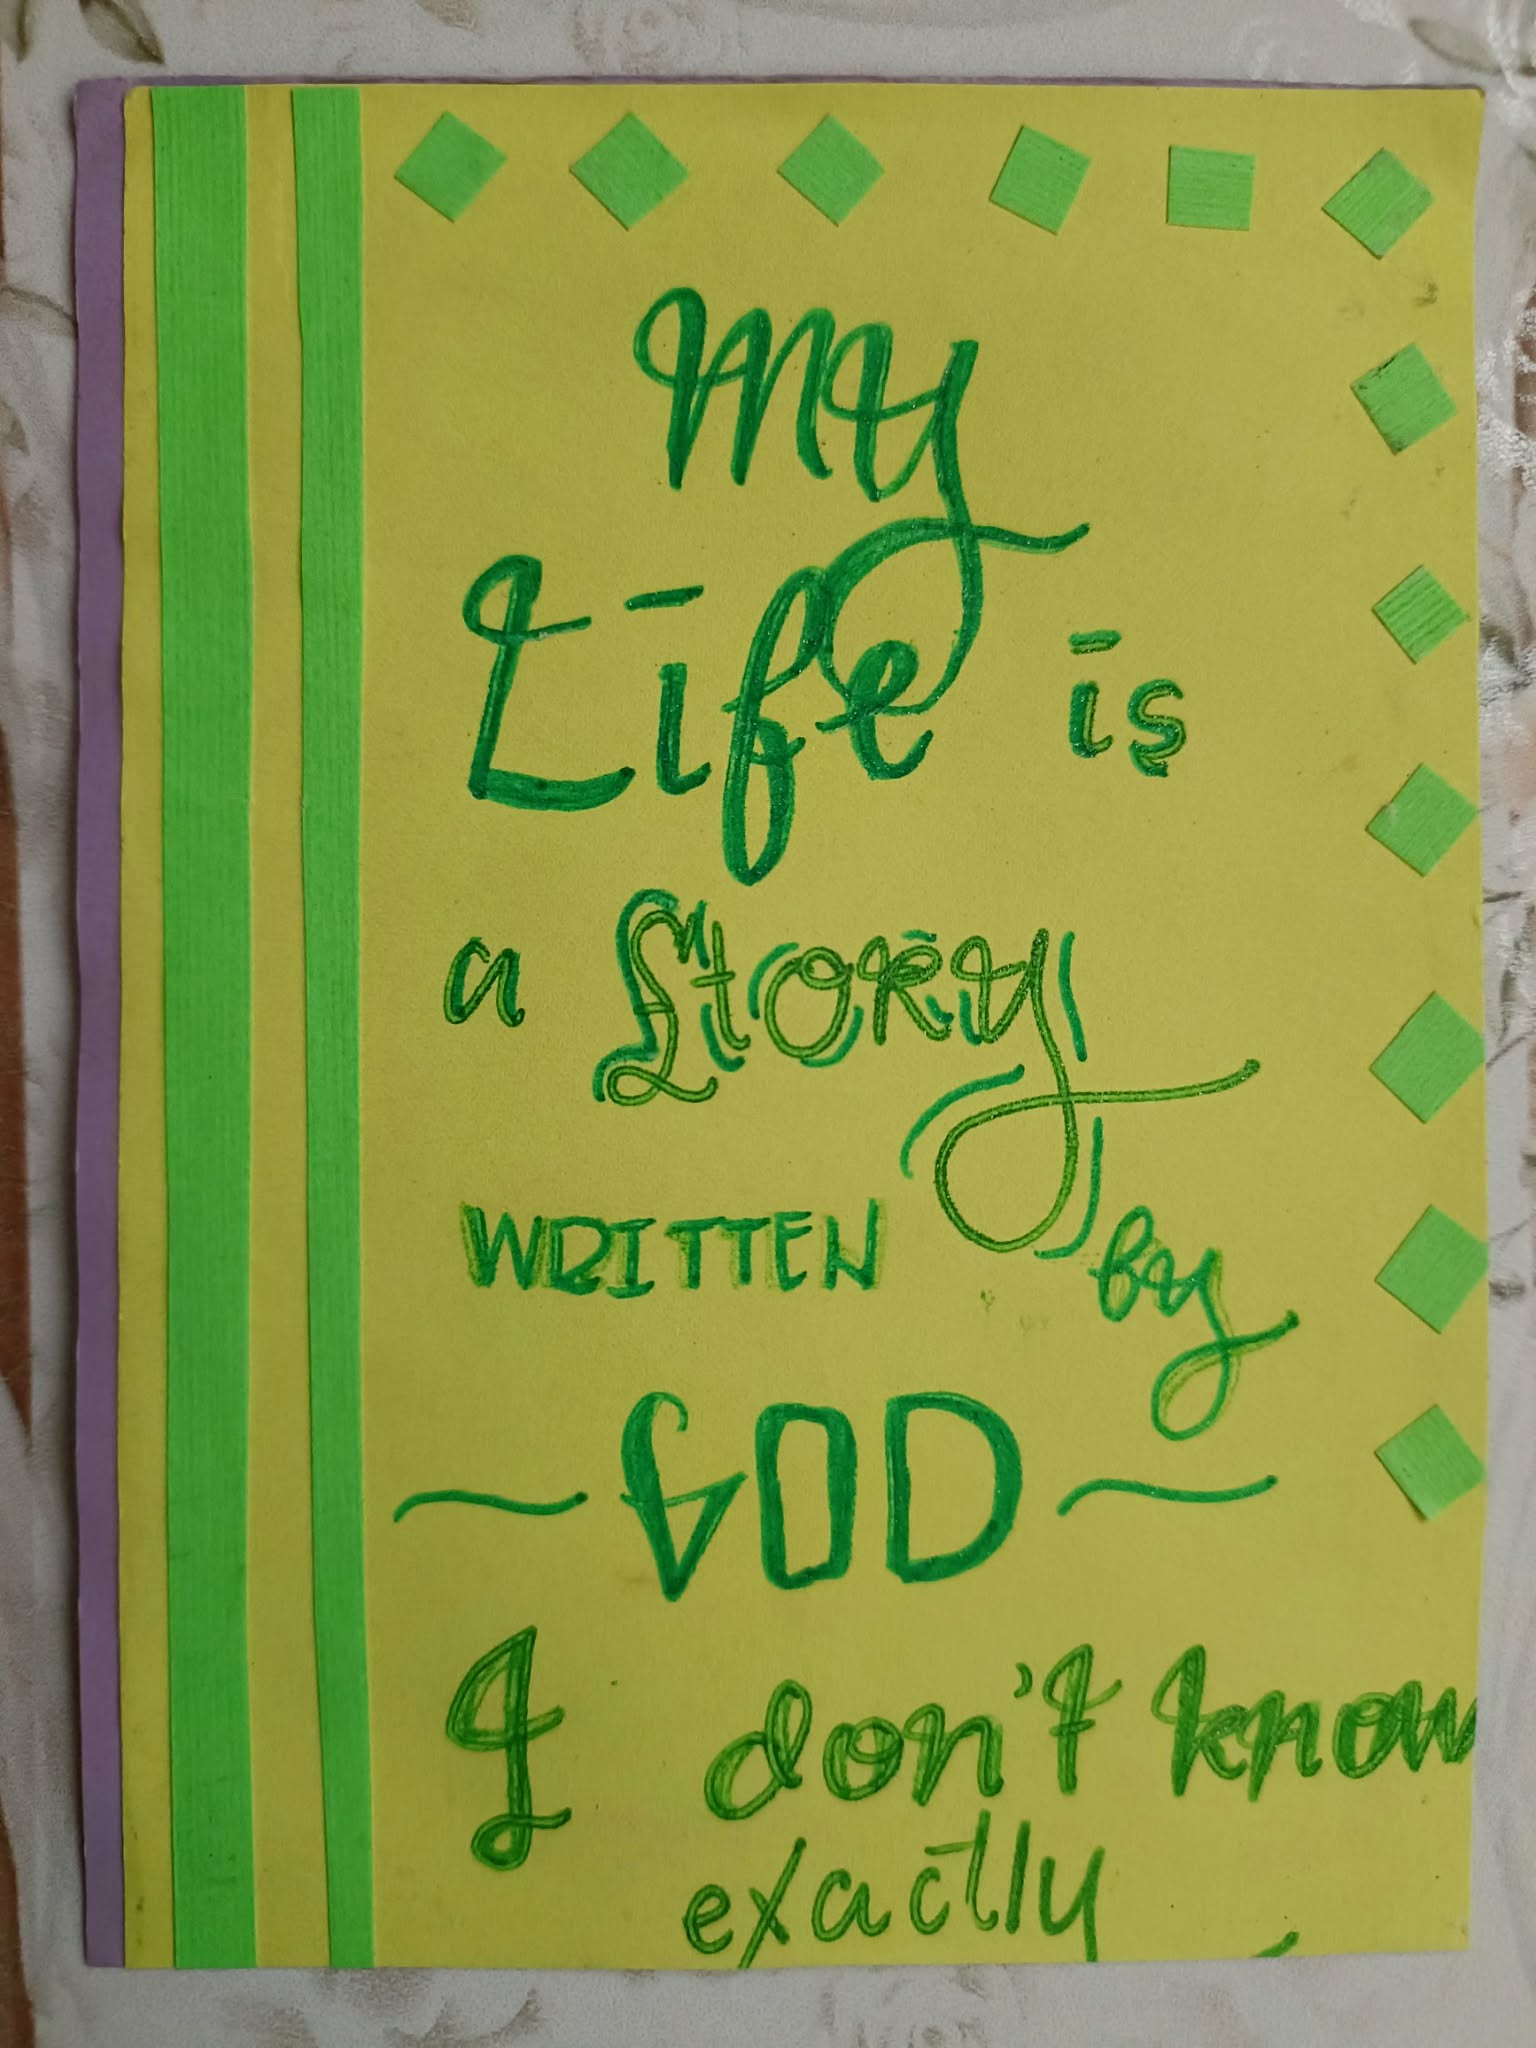 My
Life is
a Story
WRITTEN by
~ GOD ~
I don't know
exactly